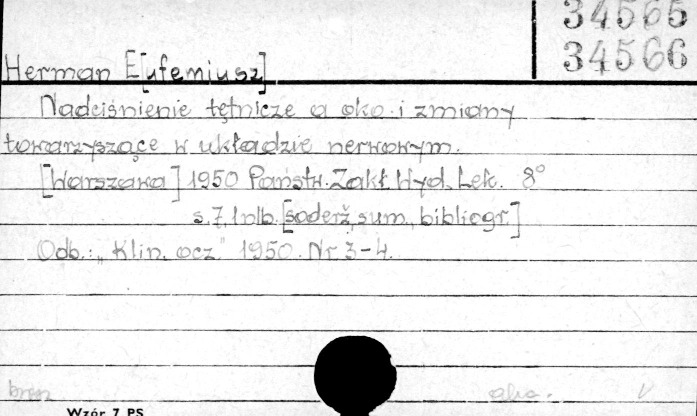 34565
34566
Herman E[ufemiusz]
Nadciśnienie tętnicze a oko i zmiany
towarzyszące w układzie nerwowym.
[Warszawa] 1950 Państw. Zakł. Wyd. Lek. 8°
s. 7, 1 nlb. [soderž, sum, bibliogr.]
Odb.: „Klin. ocz." 1950. Nr 3-4.
Wzór 7 PS